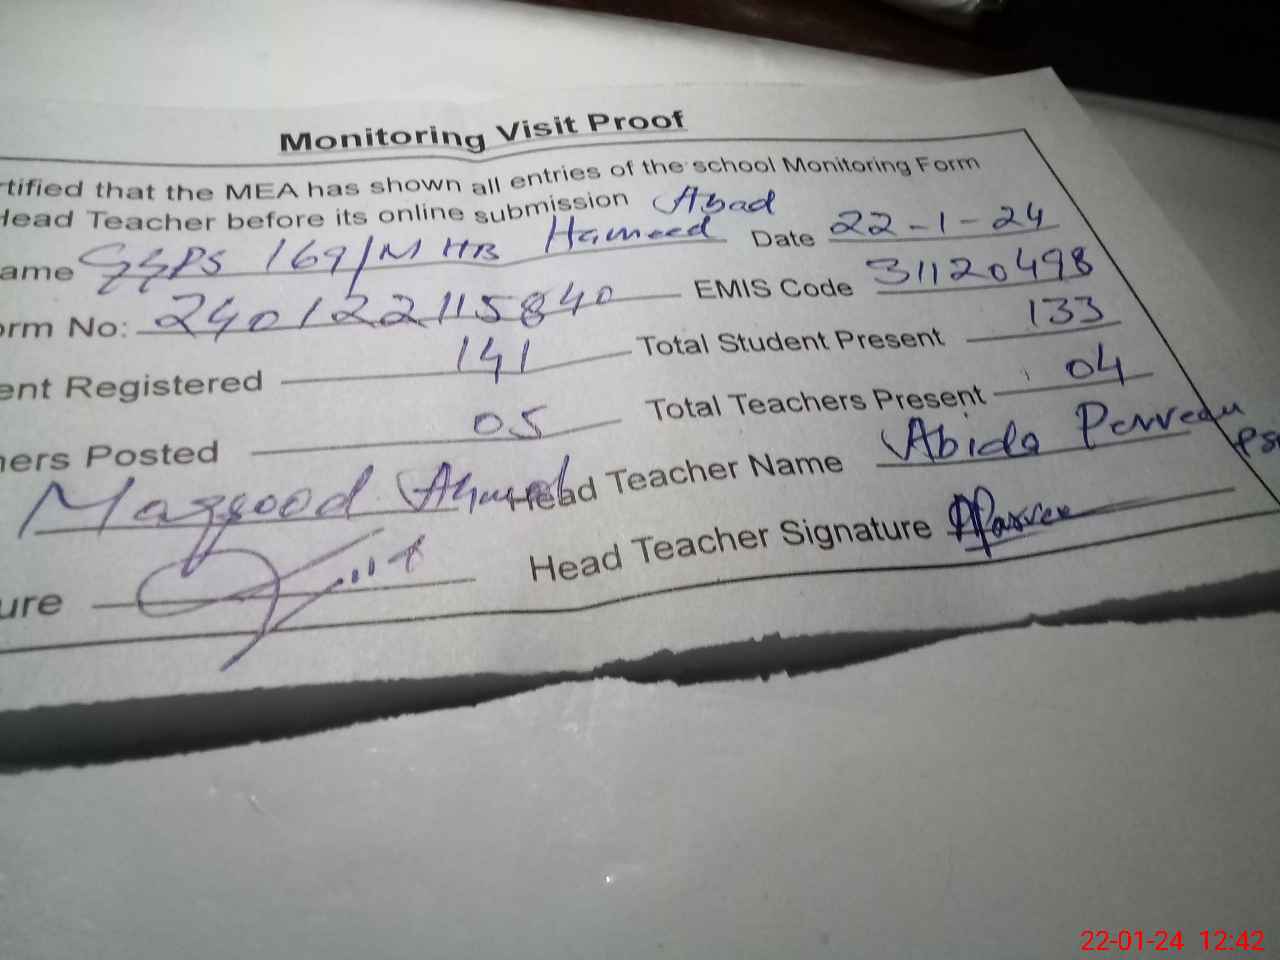 Monitoring Visit Proof
rtified that the MEA has shown all entries of the school Monitoring Form
Head Teacher before its online submission
Abad
ame GGPS 169/M HB Hameed Date 22-1-24
orm No: 240122115840 EMIS Code 31120498
ent Registered 141 Total Student Present 133
hers Posted 05 Total Teachers Present 04
Maqsood Ahmed Head Teacher Name Abida Perveen
ure Head Teacher Signature
22-01-24 12:42